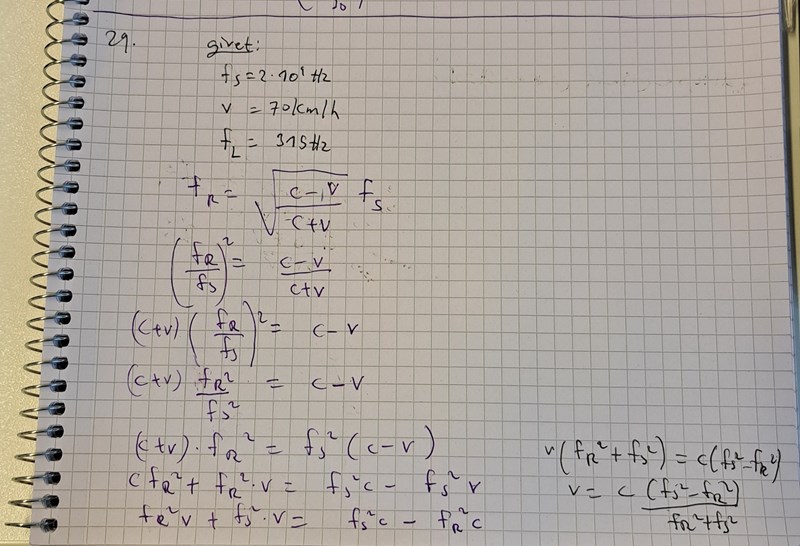 29.
givet:
fs = 2·10⁹ Hz
v = 70 km/h
f_L = 315 Hz
f_R = √((c-v)/(c+v)) f_s
(f_R/f_s)² = (c-v)/(c+v)
(c+v) (f_R/f_s)² = c-v
(c+v) f_R²/f_s² = c-v
(c+v)·f_R² = f_s² (c-v)
c f_R² + f_R²·v = f_s²c - f_s² v
f_R² v + f_s²·v = f_s²c - f_R² c
v(f_R² + f_s²) = c(f_s² - f_R²)
v = c (f_s² - f_R²)/(f_R² + f_s²)